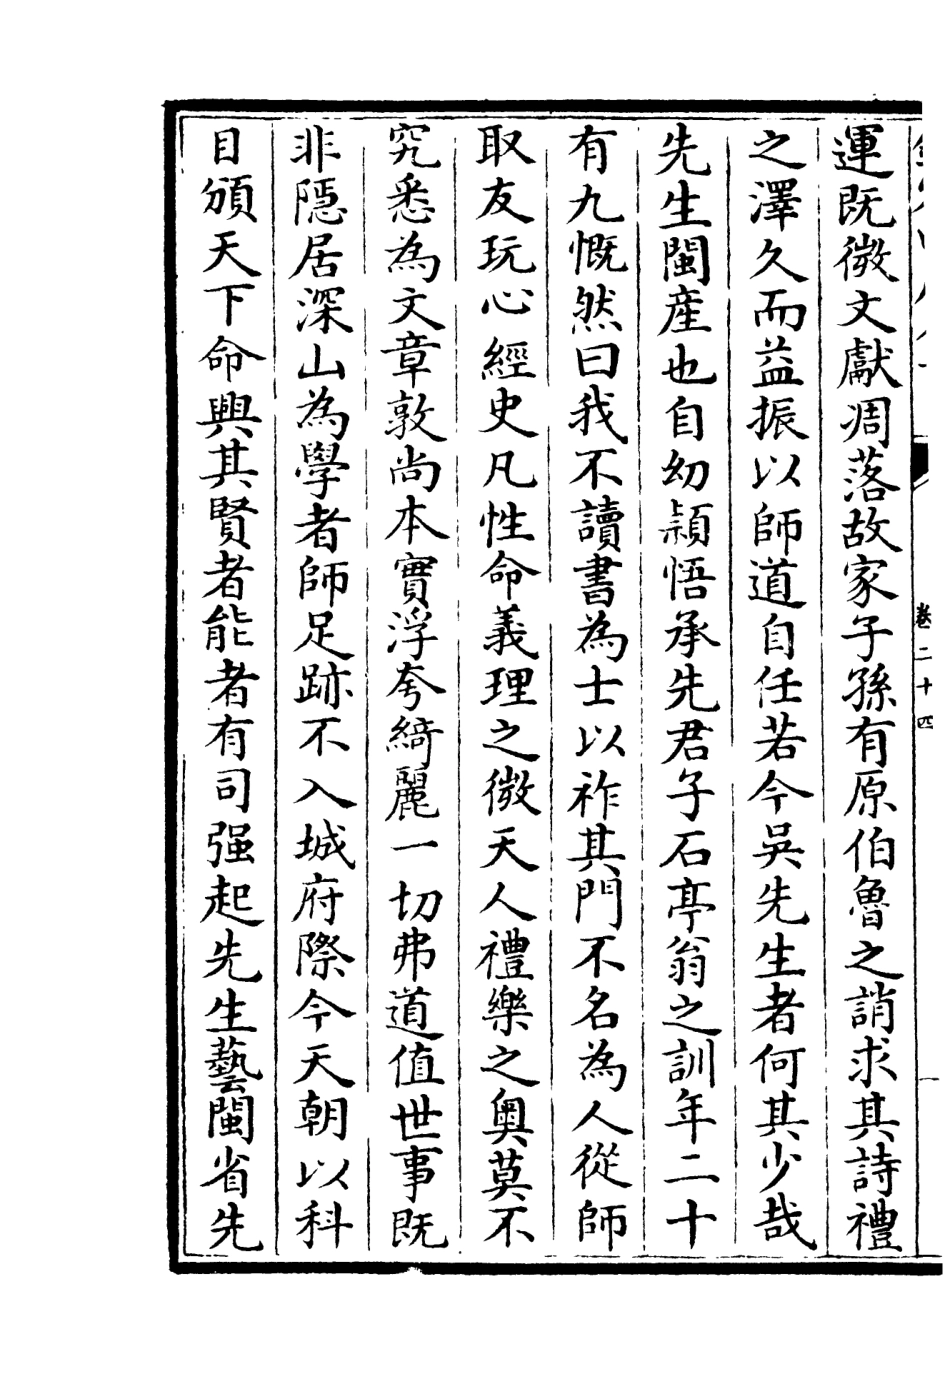 卷二十四
運既微文獻凋落故家子孫有原伯魯之誚求其詩禮
之澤久而益振以師道自任若今吳先生者何其少哉
先生閩産也自幼穎悟承先君子石亭翁之訓年二十
有九慨然曰我不讀書為士以祚其門不名為人從師
取友玩心經史凡性命義理之微天人禮樂之奥莫不
究悉為文章敦尚本實浮夸綺麗一切弗道值世事既
非隱居深山為學者師足跡不入城府際今天朝以科
目頒天下命興其賢者能者有司强起先生藝閩省先